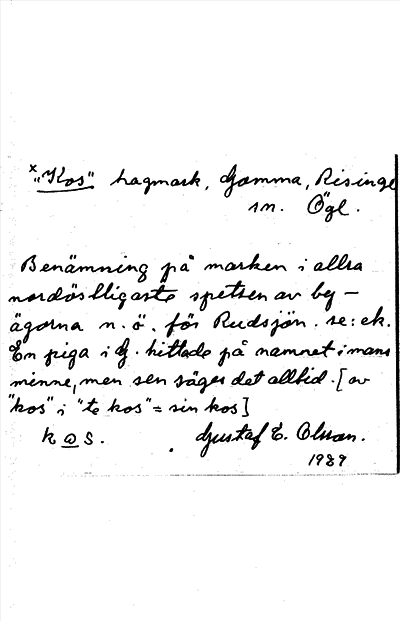 x "Kos" hagmark, Gamma, Risinge
sn. Ögl.
Benämning på marken i allra
nordöstligaste spetsen av by-
ägorna n. ö. för Rudsjön. se: ek.
En piga i G. hittade på namnet i mans
minne, men sen säges det alltid. [av
"kos" i "te kos" = sin kos]
k o s. Gustaf E. Olsson.
1929